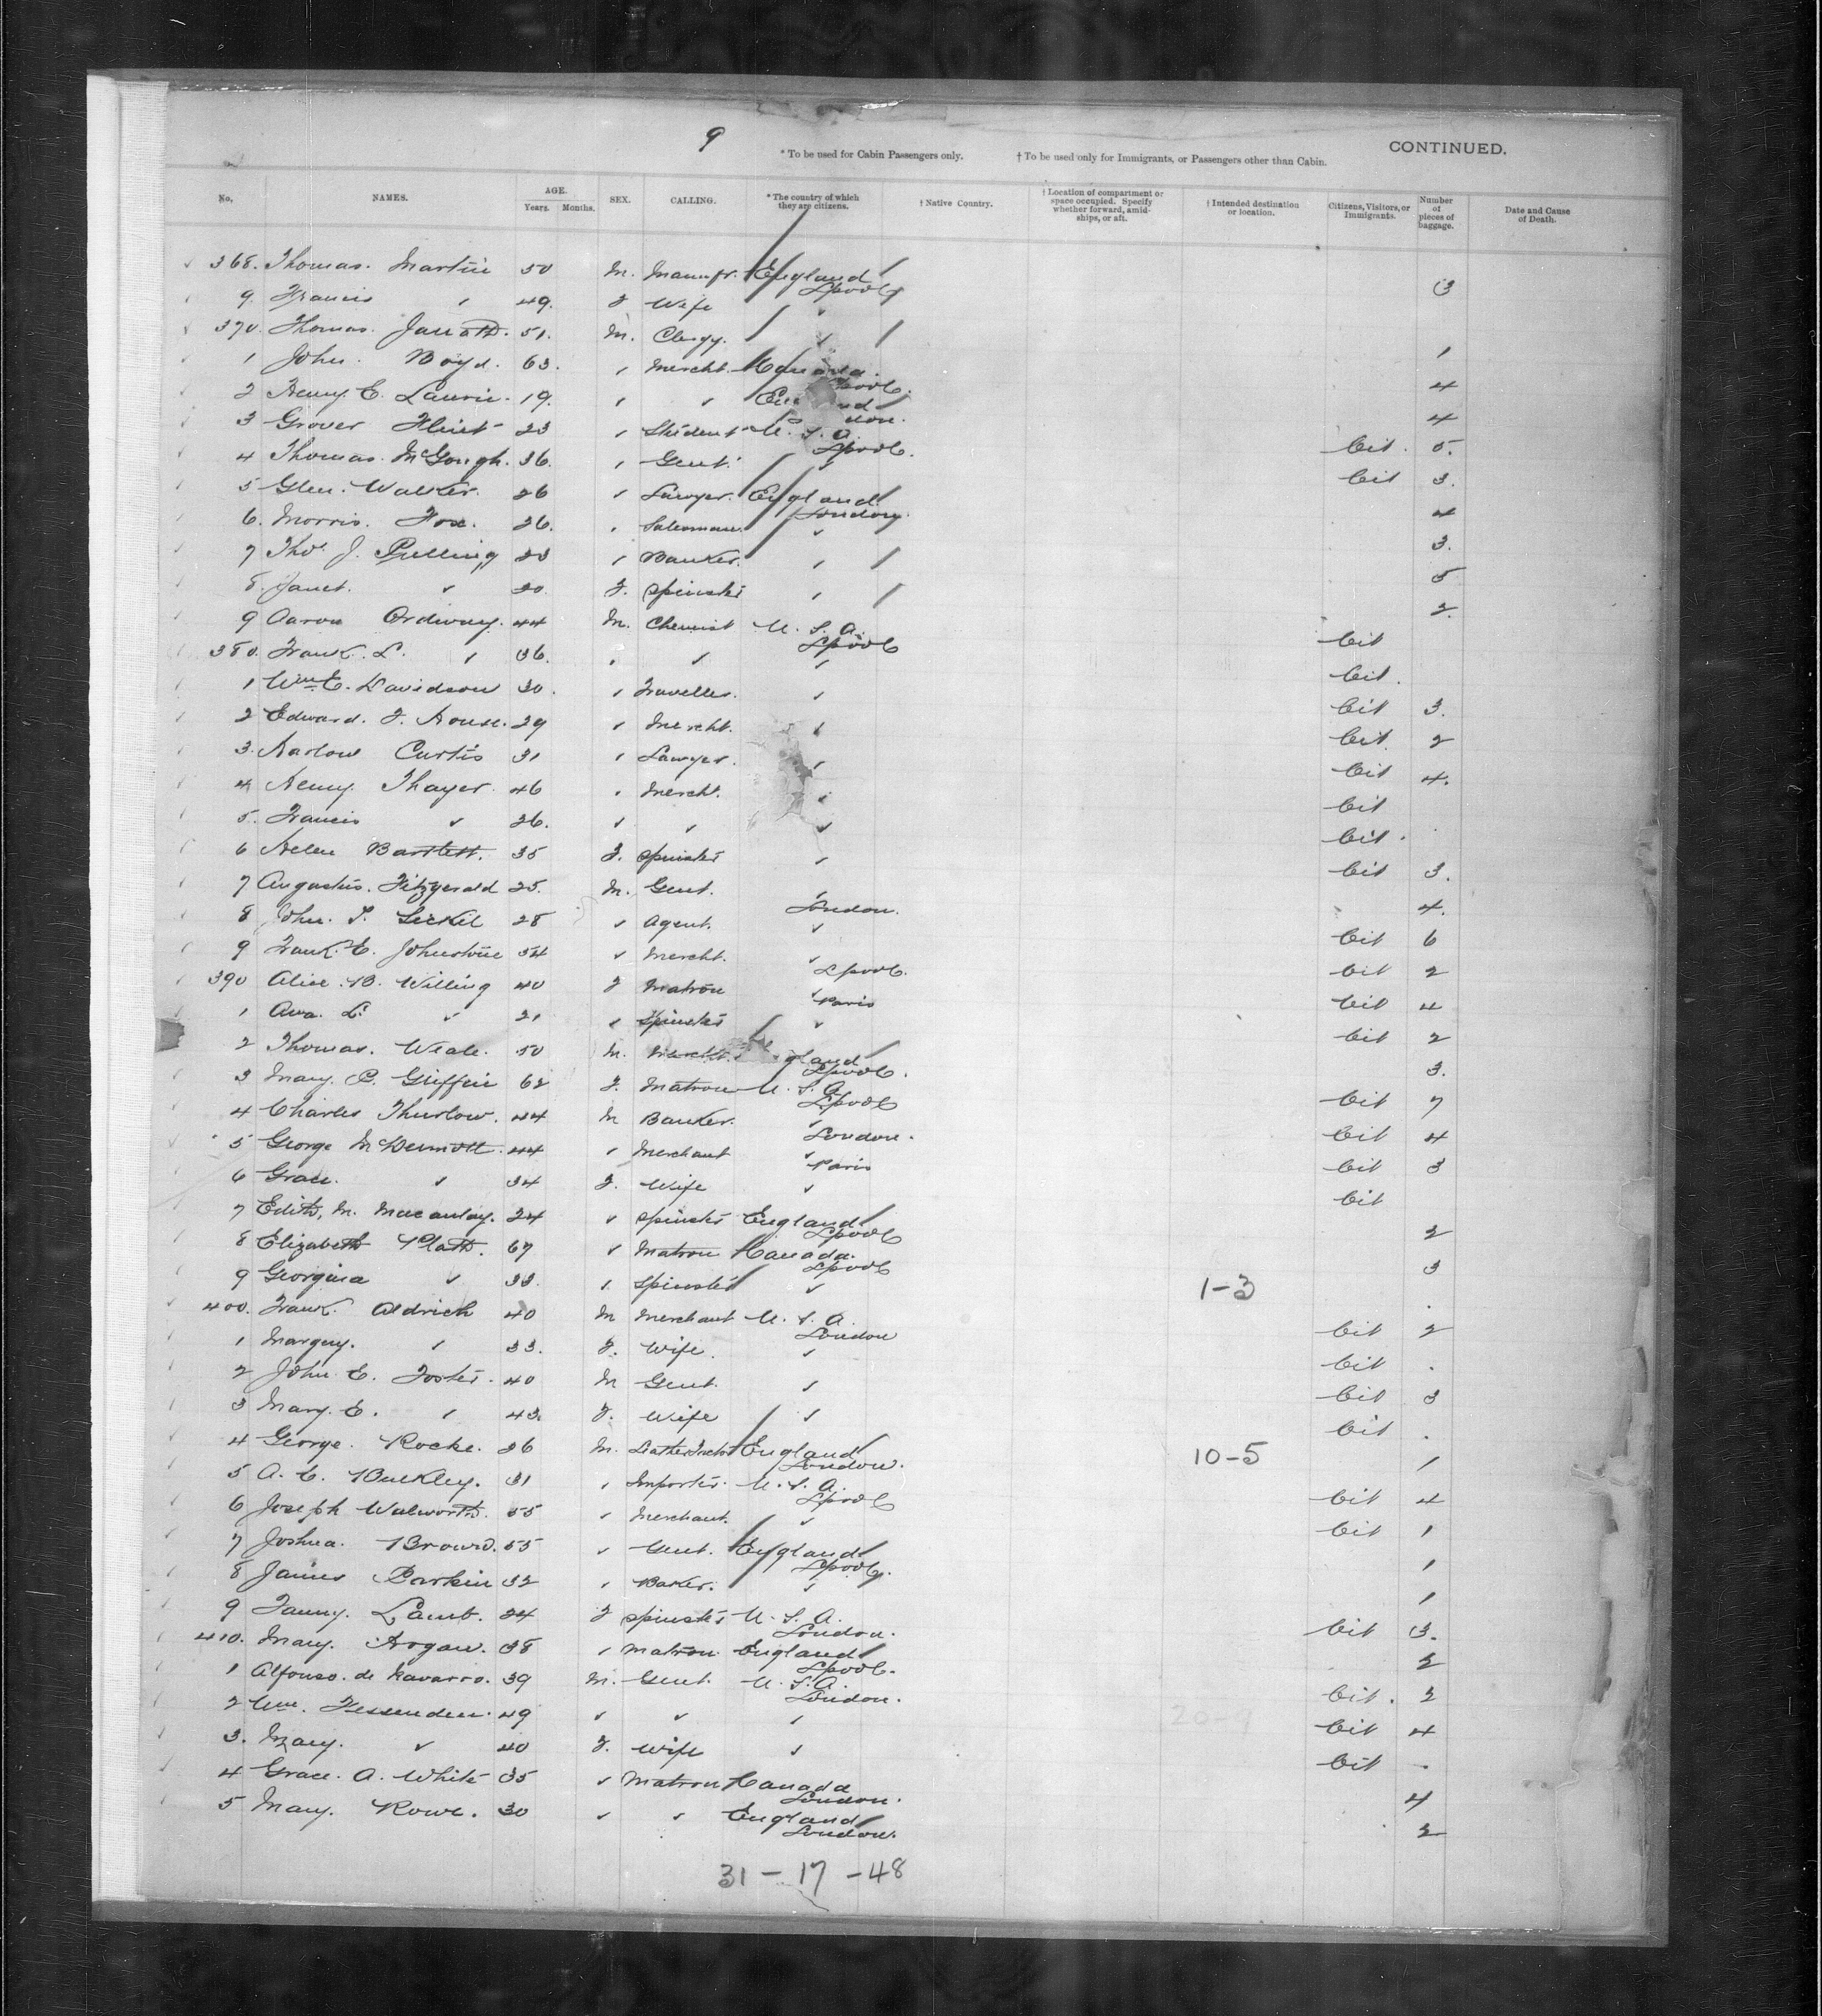 9
* To be used for Cabin Passengers only. † To be used only for Immigrants, or Passengers other than Cabin. CONTINUED.
No. NAMES. AGE. Years. Months. SEX. CALLING. * The country of which they are citizens. † Native Country. † Location of compartment or space occupied. Specify whether forward, amidships, or aft. † Intended destination or location. Citizens, Visitors, or Immigrants. Number of pieces of baggage. Date and Cause of Death.
368. Thomas. Martin 50 M. Manufr. England Lpool 3
9. Francis " 49. F Wife "
370. Thomas. Jarratt. 51. M. Clergy. " 1
1 John. Boyd. 63. " Mercht. Canada. Lpool. 4
2 Henry E. Laurie. 19. " " 4
3 Grover Flint 23 " Student U. S. A. Lpool. Cit. 5.
4 Thomas. McGough. 36. " Gent. " Cit 3.
5 Glen. Walker. 26 " Lawyer. England London. 4
6. Morris. Fox. 26. " Salesman. " 3.
7 Thos J. Pulling 23 " Banker. " 5
8. Janet. " 20. F. Spinster " 2.
9 Aaron Ordway. 44 M. Chemist U. S. A. Lpool Cit
380. Frank. L. " 36. " " " Cit.
1 Wm E. Davidson 30. " Traveller. " Cit 3.
2 Edward. F. House. 29 " Mercht. " Cit. 2
3. Harlow Curtis 31 " Lawyer. " Cit 4.
4 Henry Thayer. 46 " Mercht. " Cit
5. Francis " 26. " " " Cit.
6 Helen Bartlett. 35 F. Spinster " Cit 3.
7 Augustus. Fitzgerald 25. M. Gent. " London. 4.
8 John. T. Sickel 28 " Agent. " Cit 6
9 Frank. E. Johnstone 54 " Mercht. " Lpool. Cit 2
390 Alice. B. Willing 40 F Matron " Paris Cit 4
1 Ava. L. " 21 " Spinster " Cit 2
2 Thomas. Weale. 50 M. Mercht. England Lpool. 3.
3 Mary. P. Griffin 62 F. Matron U. S. A. Lpool Cit 7
4 Charles Thurlow. 44 M Banker. " London. Cit 4
5 George McDermott. 44 " Merchant " Paris Cit 3
6 Grace. " 34 F. Wife " Cit
7 Edith, M. Macaulay. 24 " Spinster England Lpool 2
8 Elizabeth Plath. 67 " Matron Canada. Lpool 3
9 Georgina " 33. " Spinster " 1-3 .
400. Frank. Aldrich 40 M Merchant U. S. A. London Cit 2
1 Margery. " 33. F. Wife. " Cit .
2 John. E. Foster. 40 M Gent. " Cit 3
3 Mary. E. " 43. F. Wife " Cit. .
4 George. Rocke. 26 M. England London. 10-5 1
5 A. C. Bulkley. 31 " Importer. U. S. A. Lpool Cit 4
6 Joseph Walworth. 55 " Merchant. " Cit 1
7 Joshua. Brown. 55 " Gent. England Lpool. 1
8 James Parkin 32 " Baker. " 1
9 Fanny. Lamb. 24 F Spinster U. S. A. London. Cit 3.
410. Mary. Hogan. 38 " Matron England Lpool. 2
1 Alfonso. de Navarro. 39 M. Gent. U. S. A. London. Cit. 2
2 Wm. Fessenden. 49 " " " Cit 4
3. Mary. " 40 F. Wife " Cit .
4 Grace. A. White 35 " Matron Canada London. 4
5 Mary. Rowe. 30 " " England London. 2
31 - 17 - 48